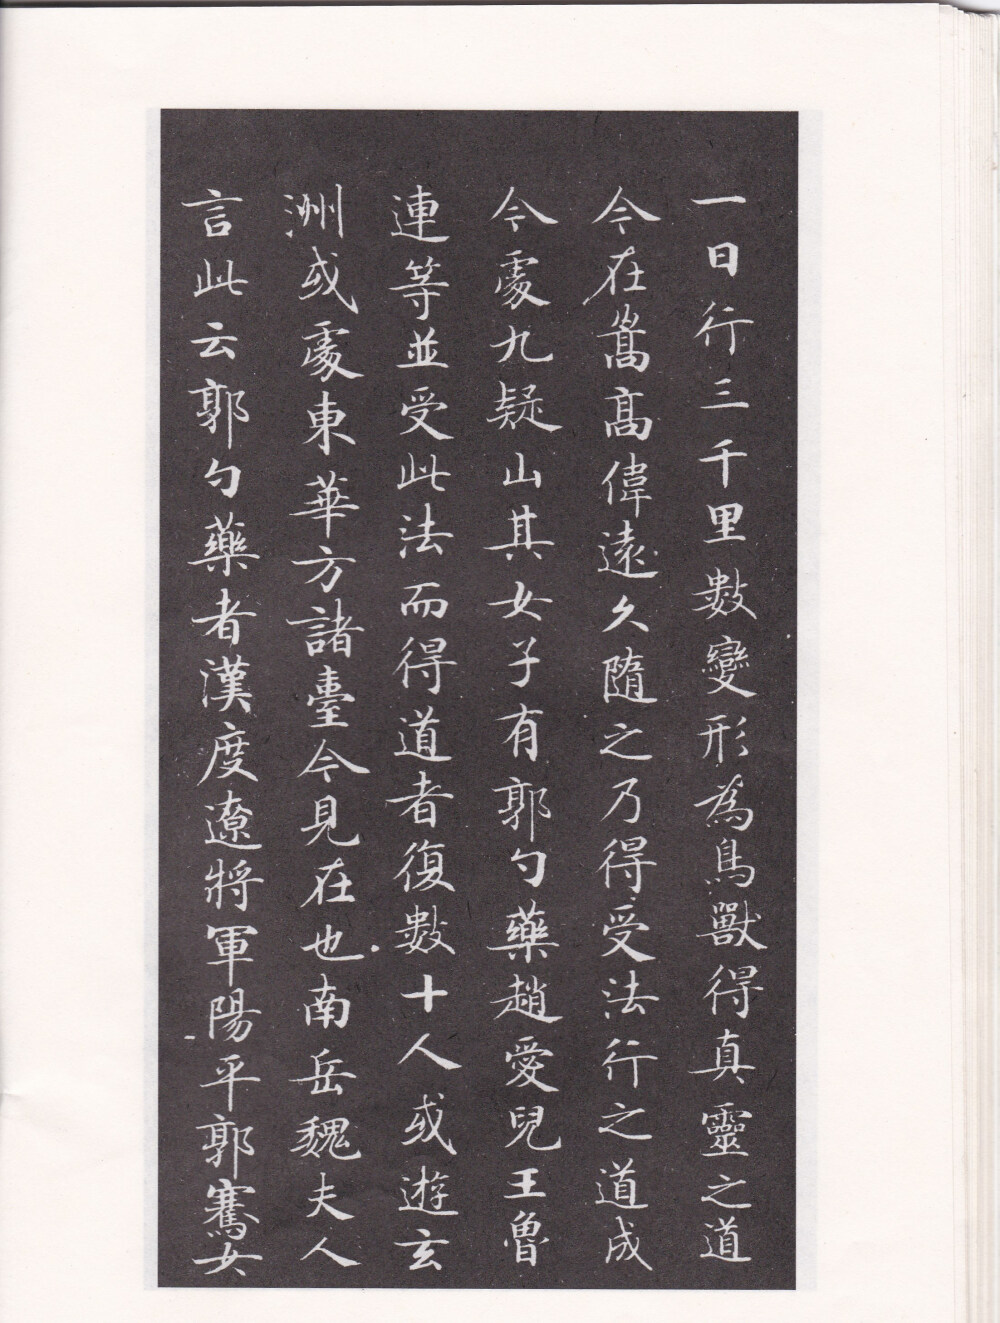 一日行三千里數變形為鳥獸得真靈之道
今在嵩高偉遠久隨之乃得受法行之道成
今處九疑山其女子有郭勺藥趙愛兒王魯
連等並受此法而得道者復數十人或遊玄
洲或處東華方諸臺今見在也南岳魏夫人
言此云郭勺藥者漢度遼將軍陽平郭騫女